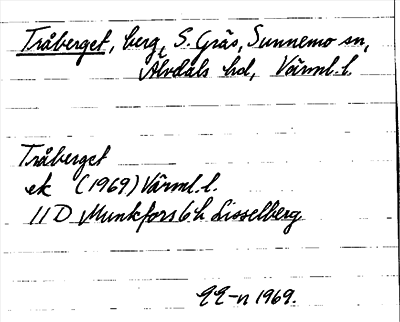 Tråberget, berg, S. Gräs, Sunnemo sn,
Älvdals hd, Värml. l.
Tråberget
ek (1969) Värml. l.
11 D Munkfors 6 h Lisselberg
1969.